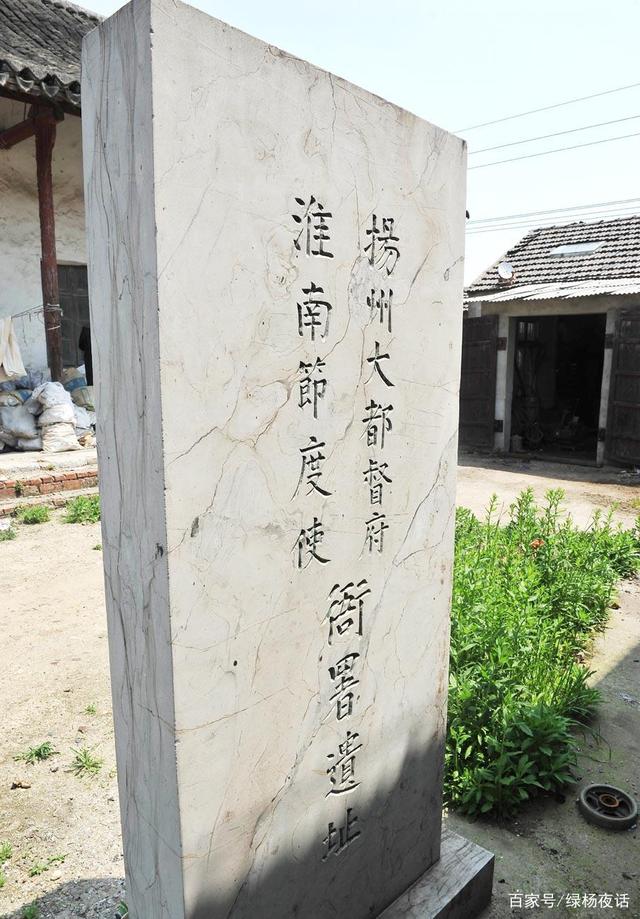 揚州大都督府
淮南節度使
衙署遺址
百家号/绿杨夜话